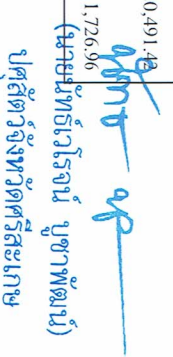 0,491.42
1,726.96
(นายภัทธ์เวโรจน์ บูชาพัฒน์)
ปศุสัตว์จังหวัดศรีสะเกษ